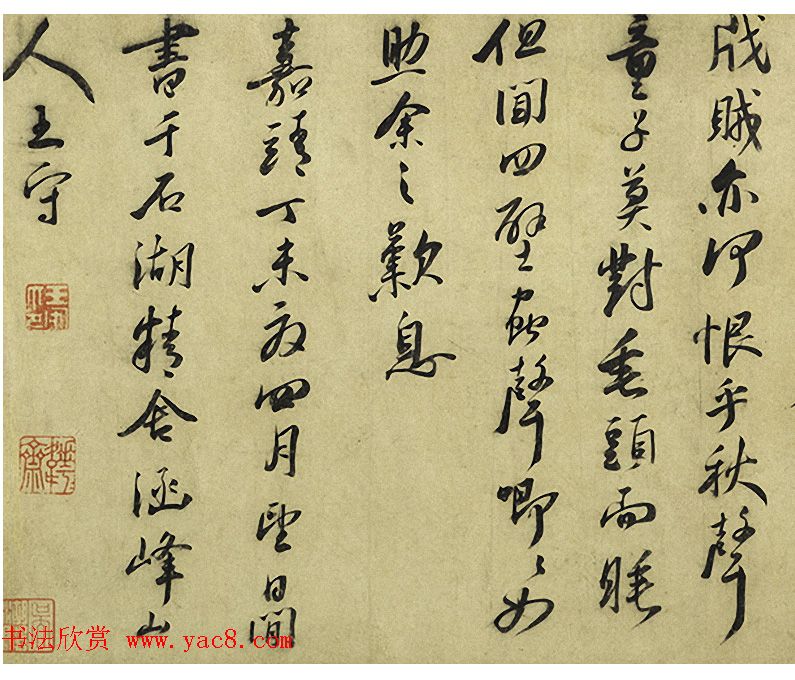 戕賊亦何恨乎秋聲
童子莫對垂頭而睡
但聞四壁蟲聲唧〻如
助余之歎息
嘉靖丁未夏四月望日閒
書于石湖精舍涵峰山
人王守
书法欣赏 www.yac8.com